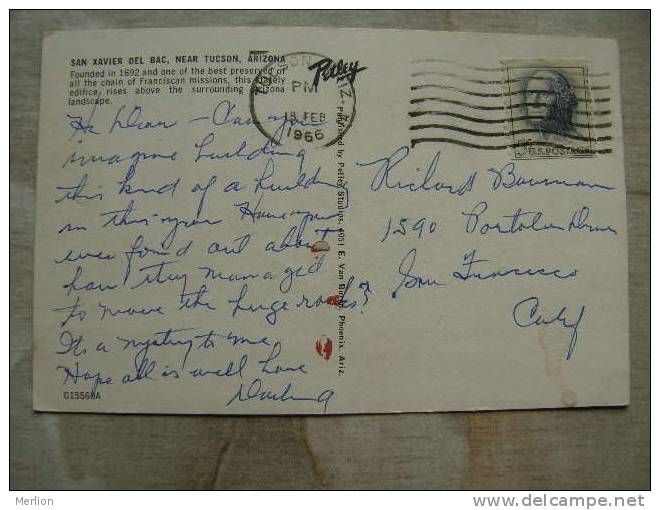 SAN XAVIER DEL BAC, NEAR TUCSON, ARIZONA
Founded in 1692 and one of the best preserved of
all the chain of Franciscan missions, this stately
edifice rises above the surrounding Arizona
landscape.
Hi Dear - Can you
imagine building
this kind of a building
in this year Have you
ever found out about
how they managed
to move the huge rocks?
Its a mystery to me
Hope all is well here
C15568A
Petley
PM
18 FEB
1966
Published by Petley Studios, 4051 E. Van Buren, Phoenix, Ariz.
U.S. POSTAGE
Richard Bowman
1590 Portola Drive
San Francisco
Calif
Merlion
www.delcampe.net